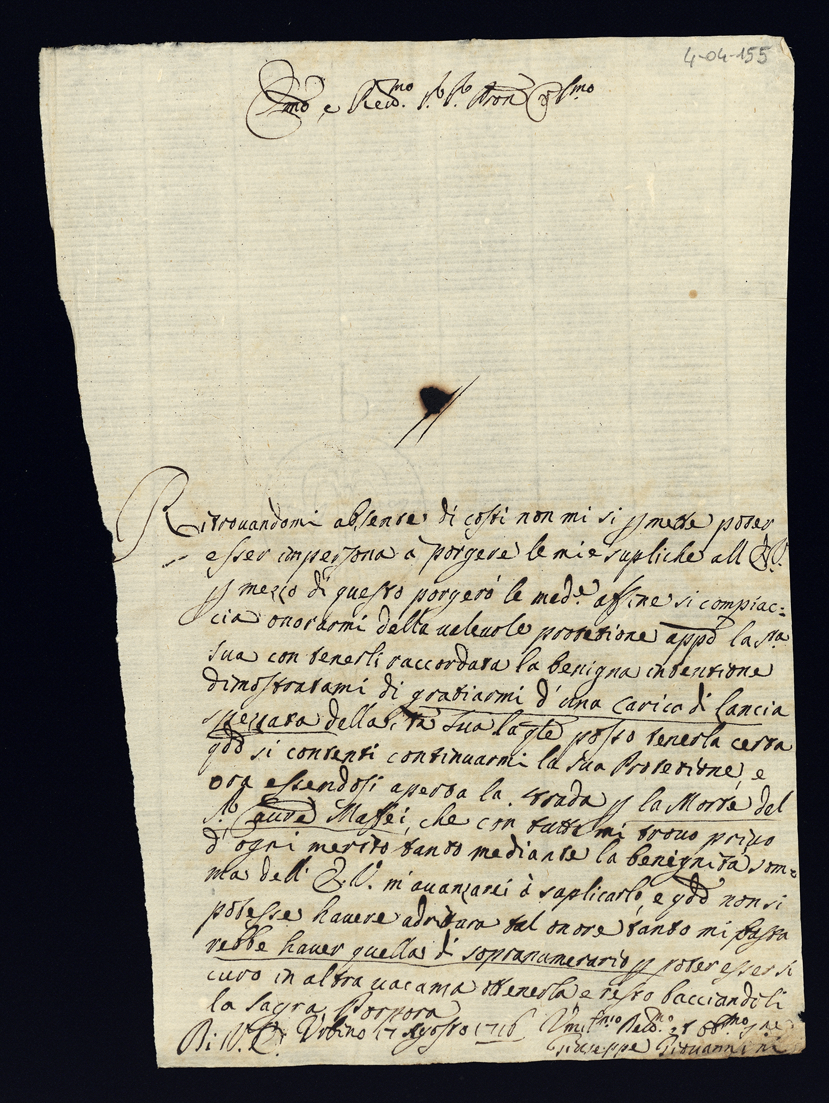 4-04-155
Em.mo e Rev.mo Sig.r Sig.r Pron Col.mo
Ritrovandomi absente di costi non mi si p mette poter
esser impersona a porgere le mie supliche all E.V.
p mezzo di questo porgerò le med.e affine si compiac=
cia onorarmi della valevole protetione appo la S.tà
sua con tenerli raccordata la benigna intentione
dimostratami di gratiarmi d'una carica di lancia
spezzata della S.tà Sua la qle posso tenerla certa
qdo si contenti continuarmi la sua Protetione, e
ora essendosi aperta la strada p la Morte del
S.r Maffei, che con tutto mi trovo privo
d'ogni merito tanto mediante la benignità som=
ma dell' E.V. m'avanzarei à suplicarlo, e qdo non si
potesse havere adritura tal onore tanto mi basta
rebbe haver quella di sopranumerario p poter esser si
curo in altra vacanza ottenerla e resto bacciandoli
la Sagra Porpora
Di V.E. Urbino 17 Agosto 1716 Um.mo Dev.mo et Obb.mo
Giuseppe Giovannini